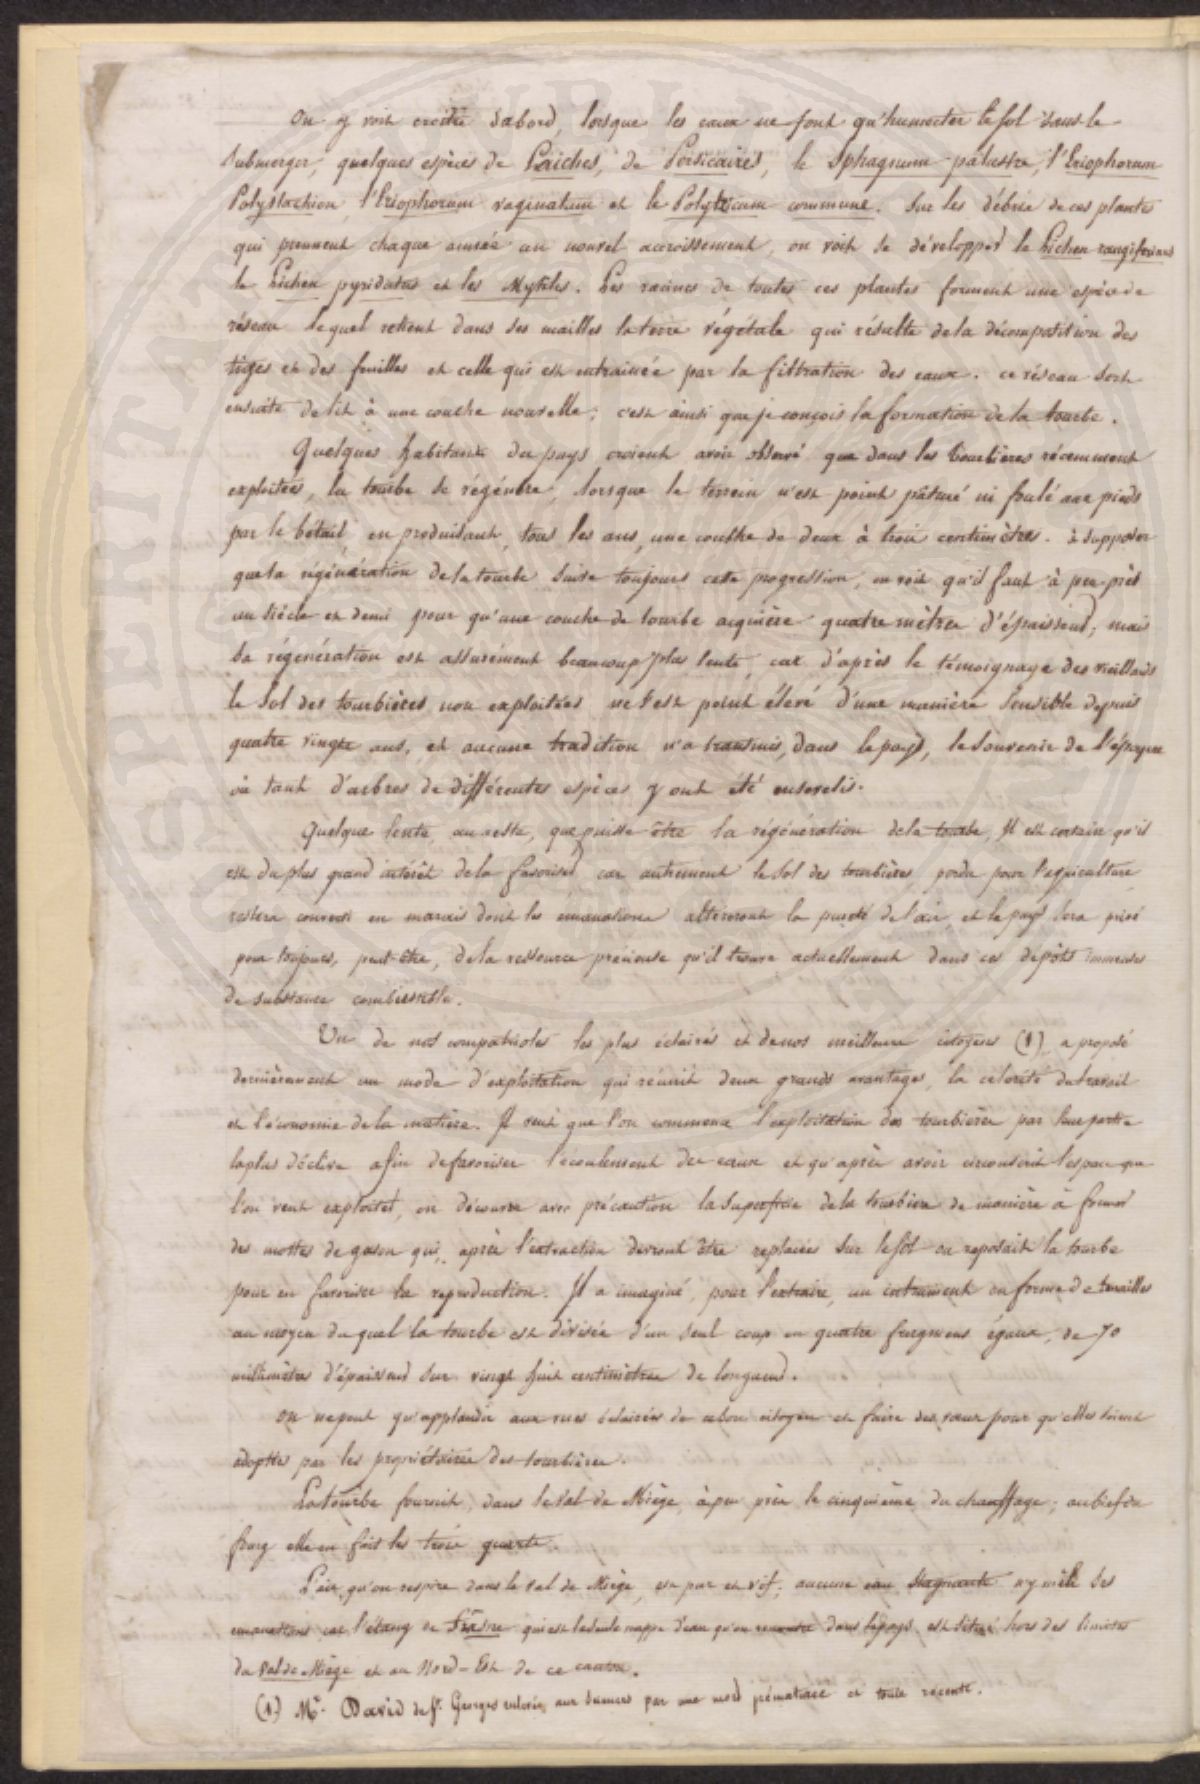 On y voit croitre d'abord, lorsque les eaux ne font qu'humecter le sol sans le
submerger, quelques espèces de Laiches, de Persicaires, le Sphagnum palustre, l'Eriophorum
Polystachion, l'Eriophorum vaginatum et le Polytricum commune. Sur les débris de ces plantes
qui prennent chaque année un nouvel accroissement, on voit se développer le Lichen rangiferinus
le Lichen pyxidatus et les Myrtiles. Les racines de toutes ces plantes forment une espèce de
réseau lequel retient dans ses mailles la terre végétale qui résulte de la décomposition des
tiges et des feuilles et celle qui est entrainée par la filtration des eaux. ce réseau sert
ensuite de lit à une couche nouvelle; c'est ainsi que je conçois la formation de la tourbe.
Quelques habitants du pays croient avoir observé que dans les tourbières récemment
exploitées, la tourbe se régénère, lorsque le terrein n'est point pâturé ni foulé aux pieds
par le bétail, en produisant, tous les ans, une couche de deux à trois centimètres. à supposer
que la régénération de la tourbe suive toujours cette progression, on voit qu'il faut à peu-près
un siècle et demi pour qu'une couche de tourbe acquière quatre mètres d'épaisseur; mais
sa régénération est assurément beaucoup plus lente, car d'après le témoignage des vieillards
le sol des tourbières non exploitées ne s'est point élevé d'une manière sensible depuis
quatre vingts ans, et aucune tradition n'a transmis, dans le pays, le souvenir de l'époque
où tant d'arbres de différentes espèces y ont été ensevelis.
Quelque lente, au reste, que puisse être la régénération de la tourbe, Il est certain qu'il
est du plus grand intérêt de la favoriser, car autrement le sol des tourbières, perdu pour l'agriculture
restera converti en marais dont les émanations altéreront la pureté de l'air, et le pays sera privé
pour toujours, peut-être, de la ressource précieuse qu'il trouve actuellement dans ces dépôts immenses
de substance combustible.
Un de nos compatriotes les plus éclairés et de nos meilleurs citoyens (1), a proposé
dernièrement un mode d'exploitation qui réunit deux grands avantages, la célérité du travail
et l'économie de la matière. Il veut que l'on commence l'exploitation des tourbières par leur partie
la plus déclive afin de favoriser l'écoulement des eaux et qu'après avoir circonscrit l'espace que
l'on veut exploiter, on découvre avec précaution la superficie de la tourbière de manière à former
des mottes de gason qui, après l'extraction devront être replacées sur le sol où reposait la tourbe
pour en favoriser la reproduction. Il a imaginé, pour l'extraire, un intrument en forme de tenailles
au moyen duquel la tourbe est divisée d'un seul coup en quatre fragmens égaux, de 70
millimètres d'épaisseur sur vingt huit centimètres de longueur.
On ne peut qu'applaudir aux vues éclairées de ce bon citoyen et faire des vœux pour qu'elles soient
adoptées par les propriétaires des tourbières.
La tourbe fournit, dans le val de Miège, à peu près le cinquième du chauffage; au bief du
fourg elle en fait les trois quarts.
L'air, qu'on respire dans le val de Miège, est pur et vif; aucune eau stagnante n'y mêle ses
émanations, car l'étang de Frasne qui est la seule nappe d'eau qu'on rencontre dans le pays, est situé hors des limites
du val de Miège et au Nord-Est de ce canton.
(1) Mr. David de St. Georges enlevé, aux sciences par une mort prématurée et toute récente.